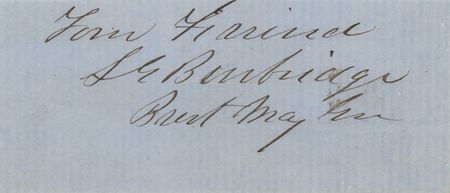 Your Friend
S G Burbridge
Brvt Maj Gen